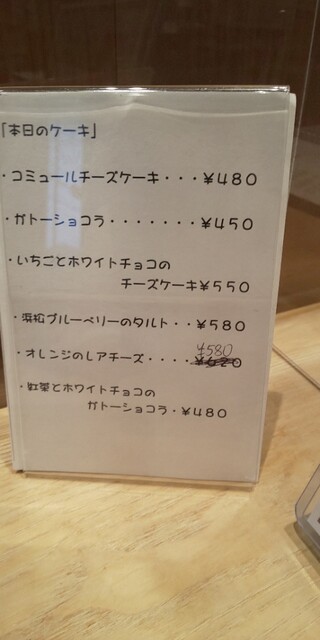 「本日のケーキ」
・コミュールチーズケーキ・・・￥４８０
・ガトーショコラ・・・・・・・￥４５０
・いちごとホワイトチョコの
チーズケーキ￥５５０
・浜松ブルーベリーのタルト・・￥５８０
￥580
・オレンジのレアチーズ・・・・￥６２０
・紅茶とホワイトチョコの
ガトーショコラ・￥４８０